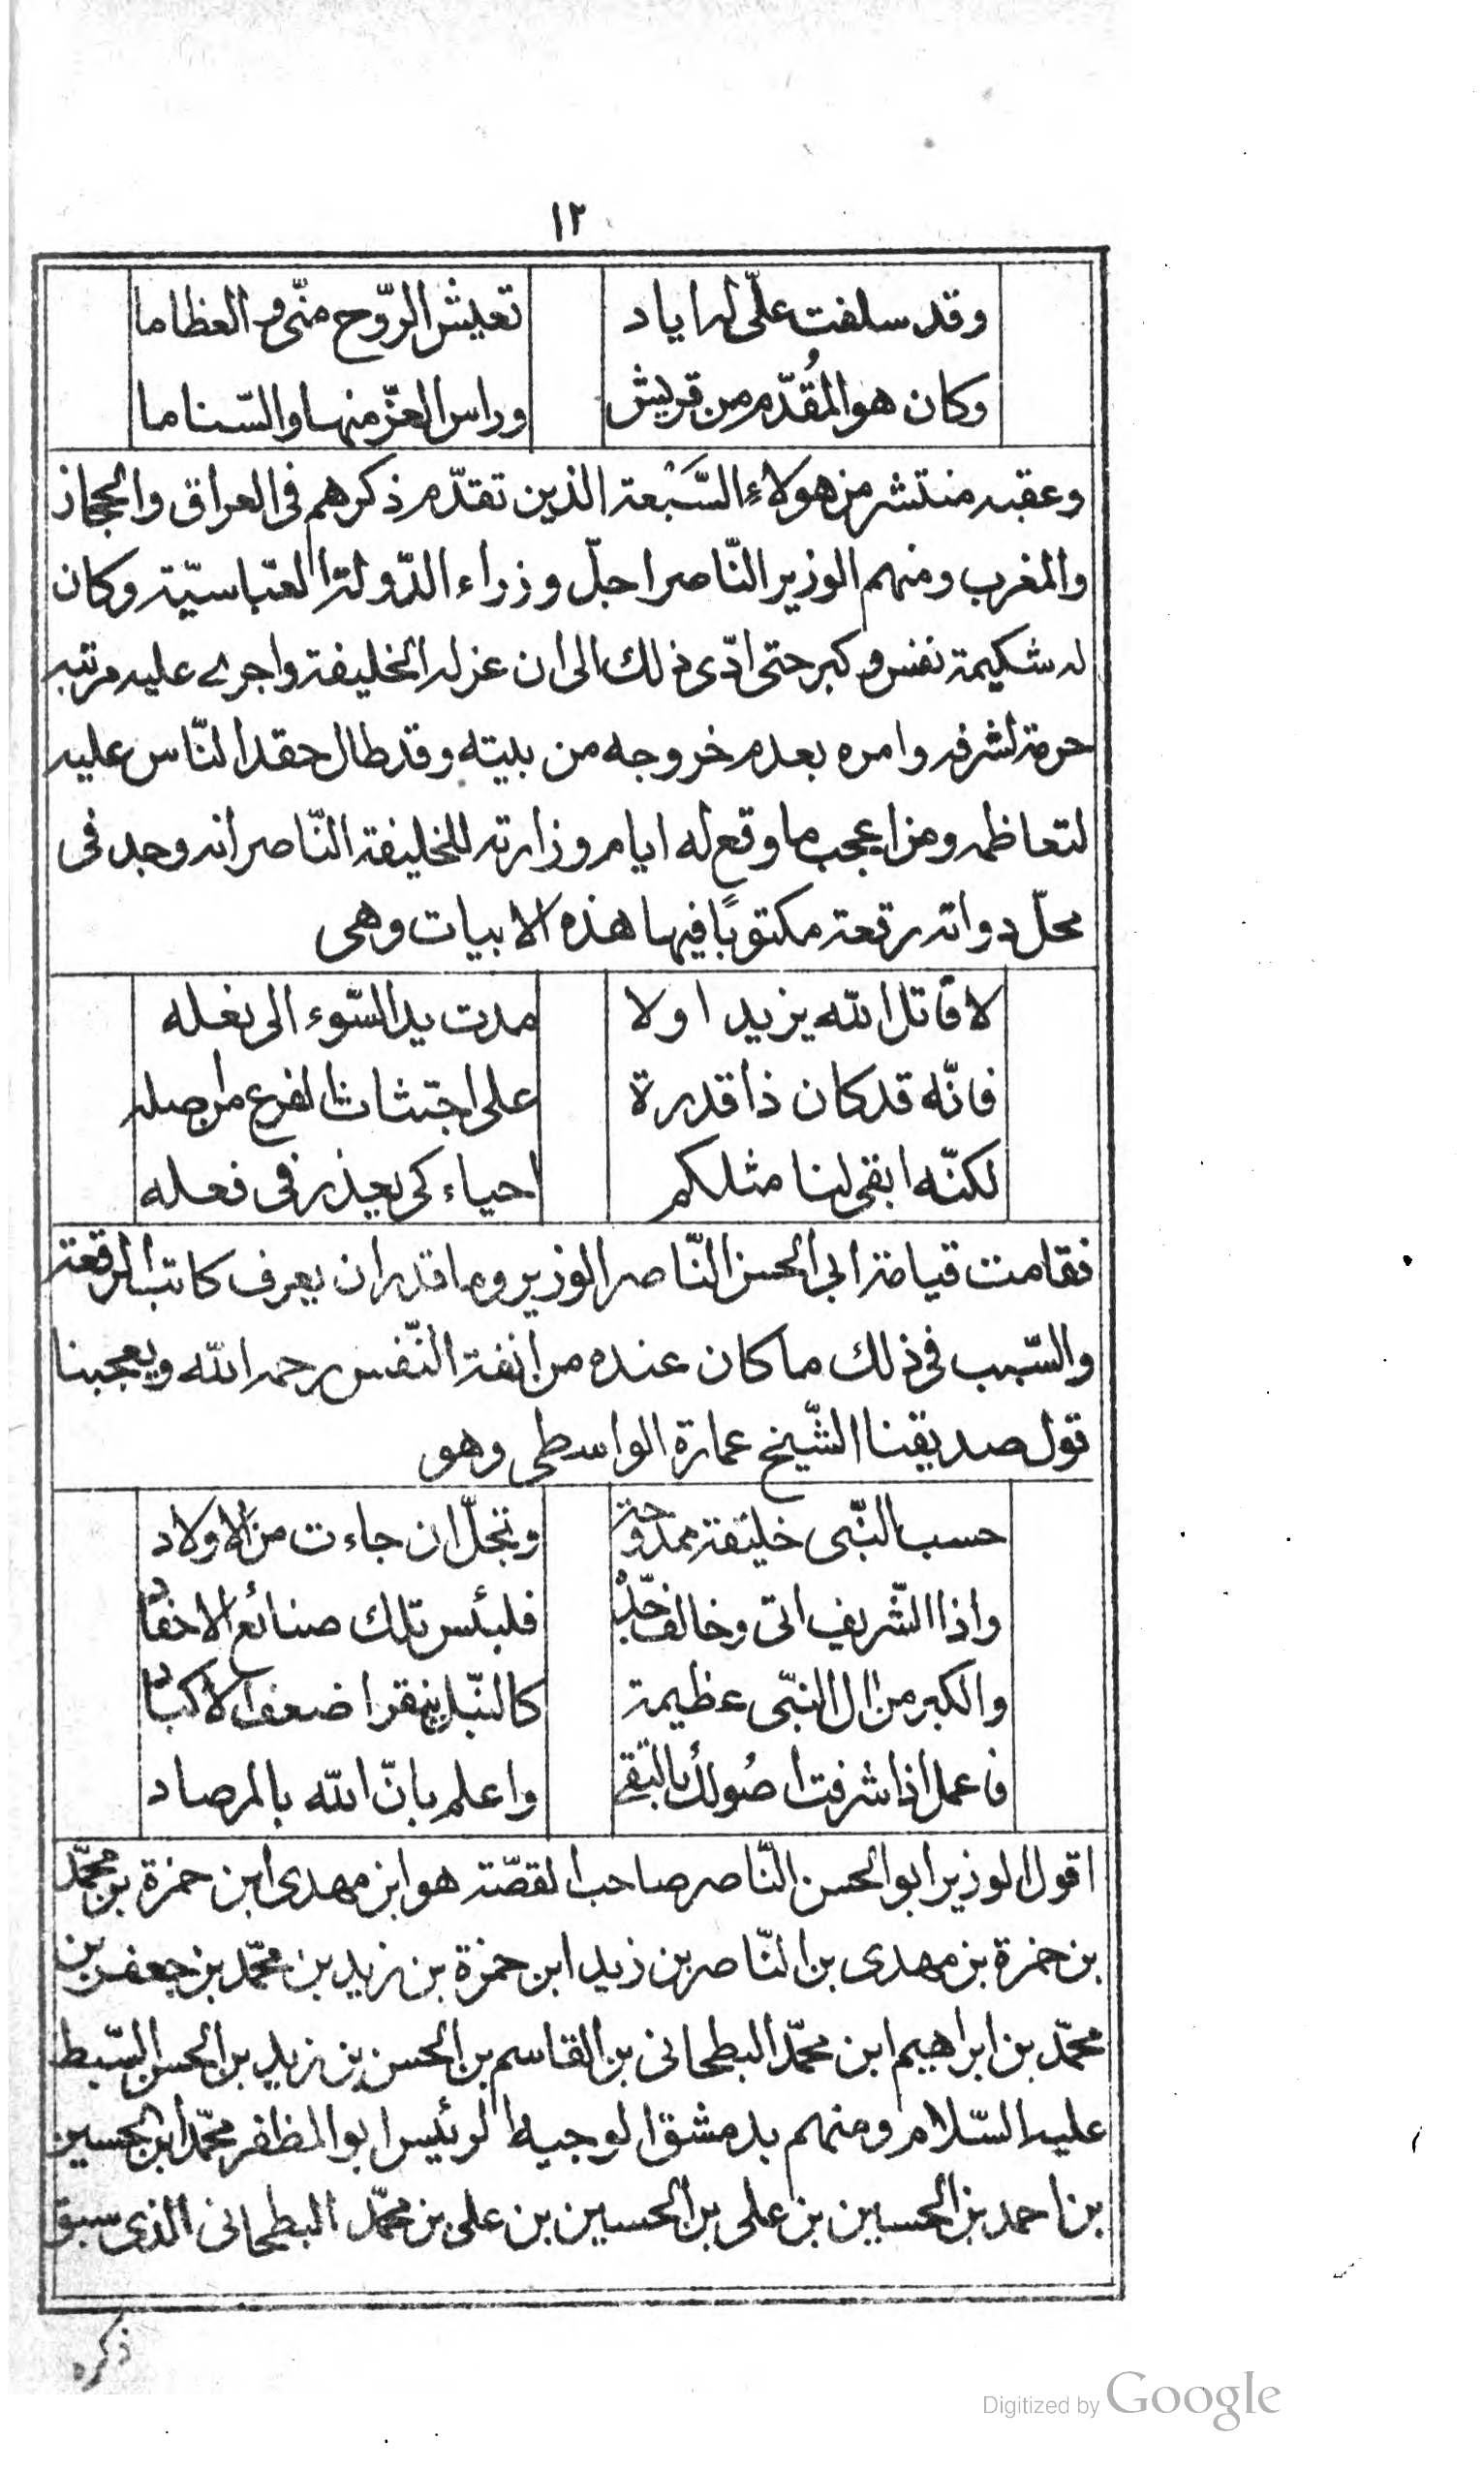 ١٢
وقد سلفت علّى له اياد تعيش الرّوح منّى والعظاما
وكان هو المُقدّم من قريش وراس العزّ منها والسّناما
وعقبه منتشر من هولاء السَّبْعة الذين تقدّم ذكرهم فى العراق والحجاز
والمغرب ومنهم الوزير النّاصر اجلّ وزراء الدّولة العبّاسيّة وكان
له شكيمة نفس وكبر حتى ادّى ذلك الى ان عزله الخليفة واجرى عليه مرتبه
حرمة لشرفه وامره بعدم خروجه من بيته وقد طال حقد النّاس عليه
لتعاظمه ومن اعجب ما وقع له ايام وزارته للخليفة النّاصر انه وجد فى
محلّ دواته رقعة مكتوبًا فيها هذه الابيات وهى
لا قاتل الله يزيد اولا مدت يد السّوء الى نعله
فانّه قد كان ذا قدرة على اجتثاث الفرع من اصله
لكنّه ابقى لنا مثلكم احياء كى يعذر فى فعله
فقامت قيامة ابى الحسن النّاصر الوزير وما قدر ان يعرف كاتب الرقعة
والسّبب فى ذلك ما كان عنده من انفة النّفس رحمه الله ويعجبنا
قول صديقنا الشّيخ عمارة الواسطى وهو
حسب النّبى خليقة ممدوحة وتجلّ ان جاءت من الاولاد
واذا الشّريف اتى وخالف جدّه فلبئس تلك صنائع الاحفاد
والكبر من ال النبّى عظيمة كالنّبل ينقر اضعف الاكباد
فاعمل اذا شرفت اصُولك بالتّقى واعلم بانّ الله بالمرصاد
اقول الوزير ابو الحسن النّاصر صاحب القصّة هو ابن مهدى ابن حمزة بن محمّد
بن حمزة بن مهدى بن النّاصر بن زيد ابن حمزة بن زيد بن محمّد بن جعفر بن
محمّد بن ابراهيم ابن محمّد البطحانى بن القاسم بن الحسن بن زيد بن الحسن السّبط
عليه السّلام ومنهم بدمشق الوجيه الرئيس ابو المظفر محمّد ابن الحسين
بن احمد بن الحسين بن على بن الحسين بن على بن محمّد البطحانى الذى سبق
ذكره
Digitized by Google